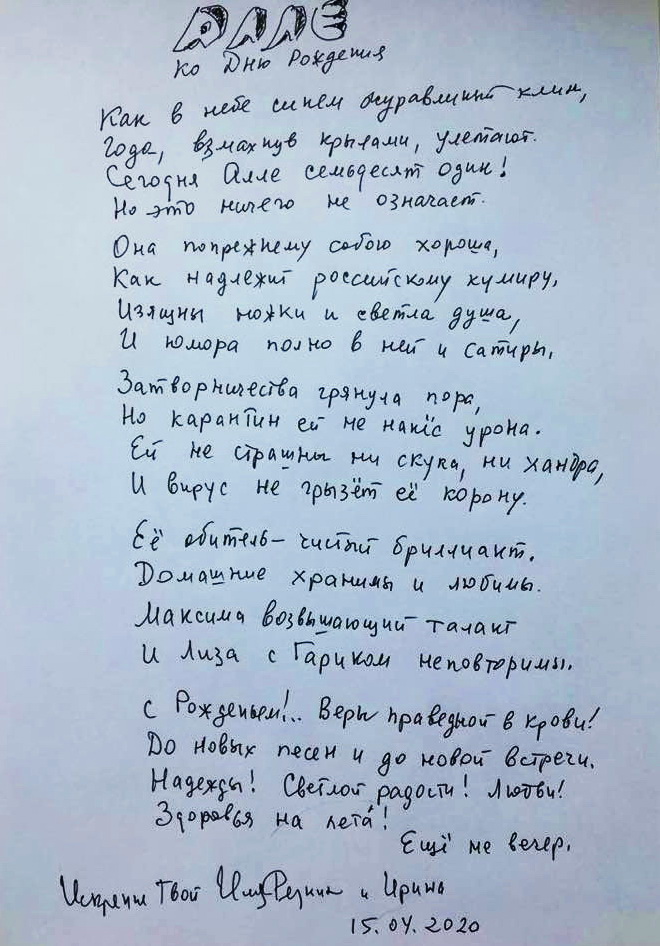 АЛЛЕ
Ко Дню Рождения
Как в небе синем журавлиный клин,
Года, взмахнув крылами, улетают.
Сегодня Алле семьдесят один!
Но это ничего не означает.
Она попрежнему собою хороша,
Как надлежит российскому кумиру,
Изящны ножки и светла душа,
И юмора полно в ней и сатиры.
Затворничества грянула пора,
Но карантин ей не нанёс урона.
Ей не страшны ни скука, ни хандра,
И вирус не грызёт её корону.
Её обитель – чистый бриллиант.
Домашние хранимы и любимы.
Максима возвышающий талант
И Лиза с Гариком неповторимы.
С Рожденьем!.. Веры праведной в крови!
До новых песен и до новой встречи.
Надежды! Светлой радости! Любви!
Здоровья на лета́!
Ещё не вечер.
Искренне Твой Илья Резник и Ирина
15.04.2020